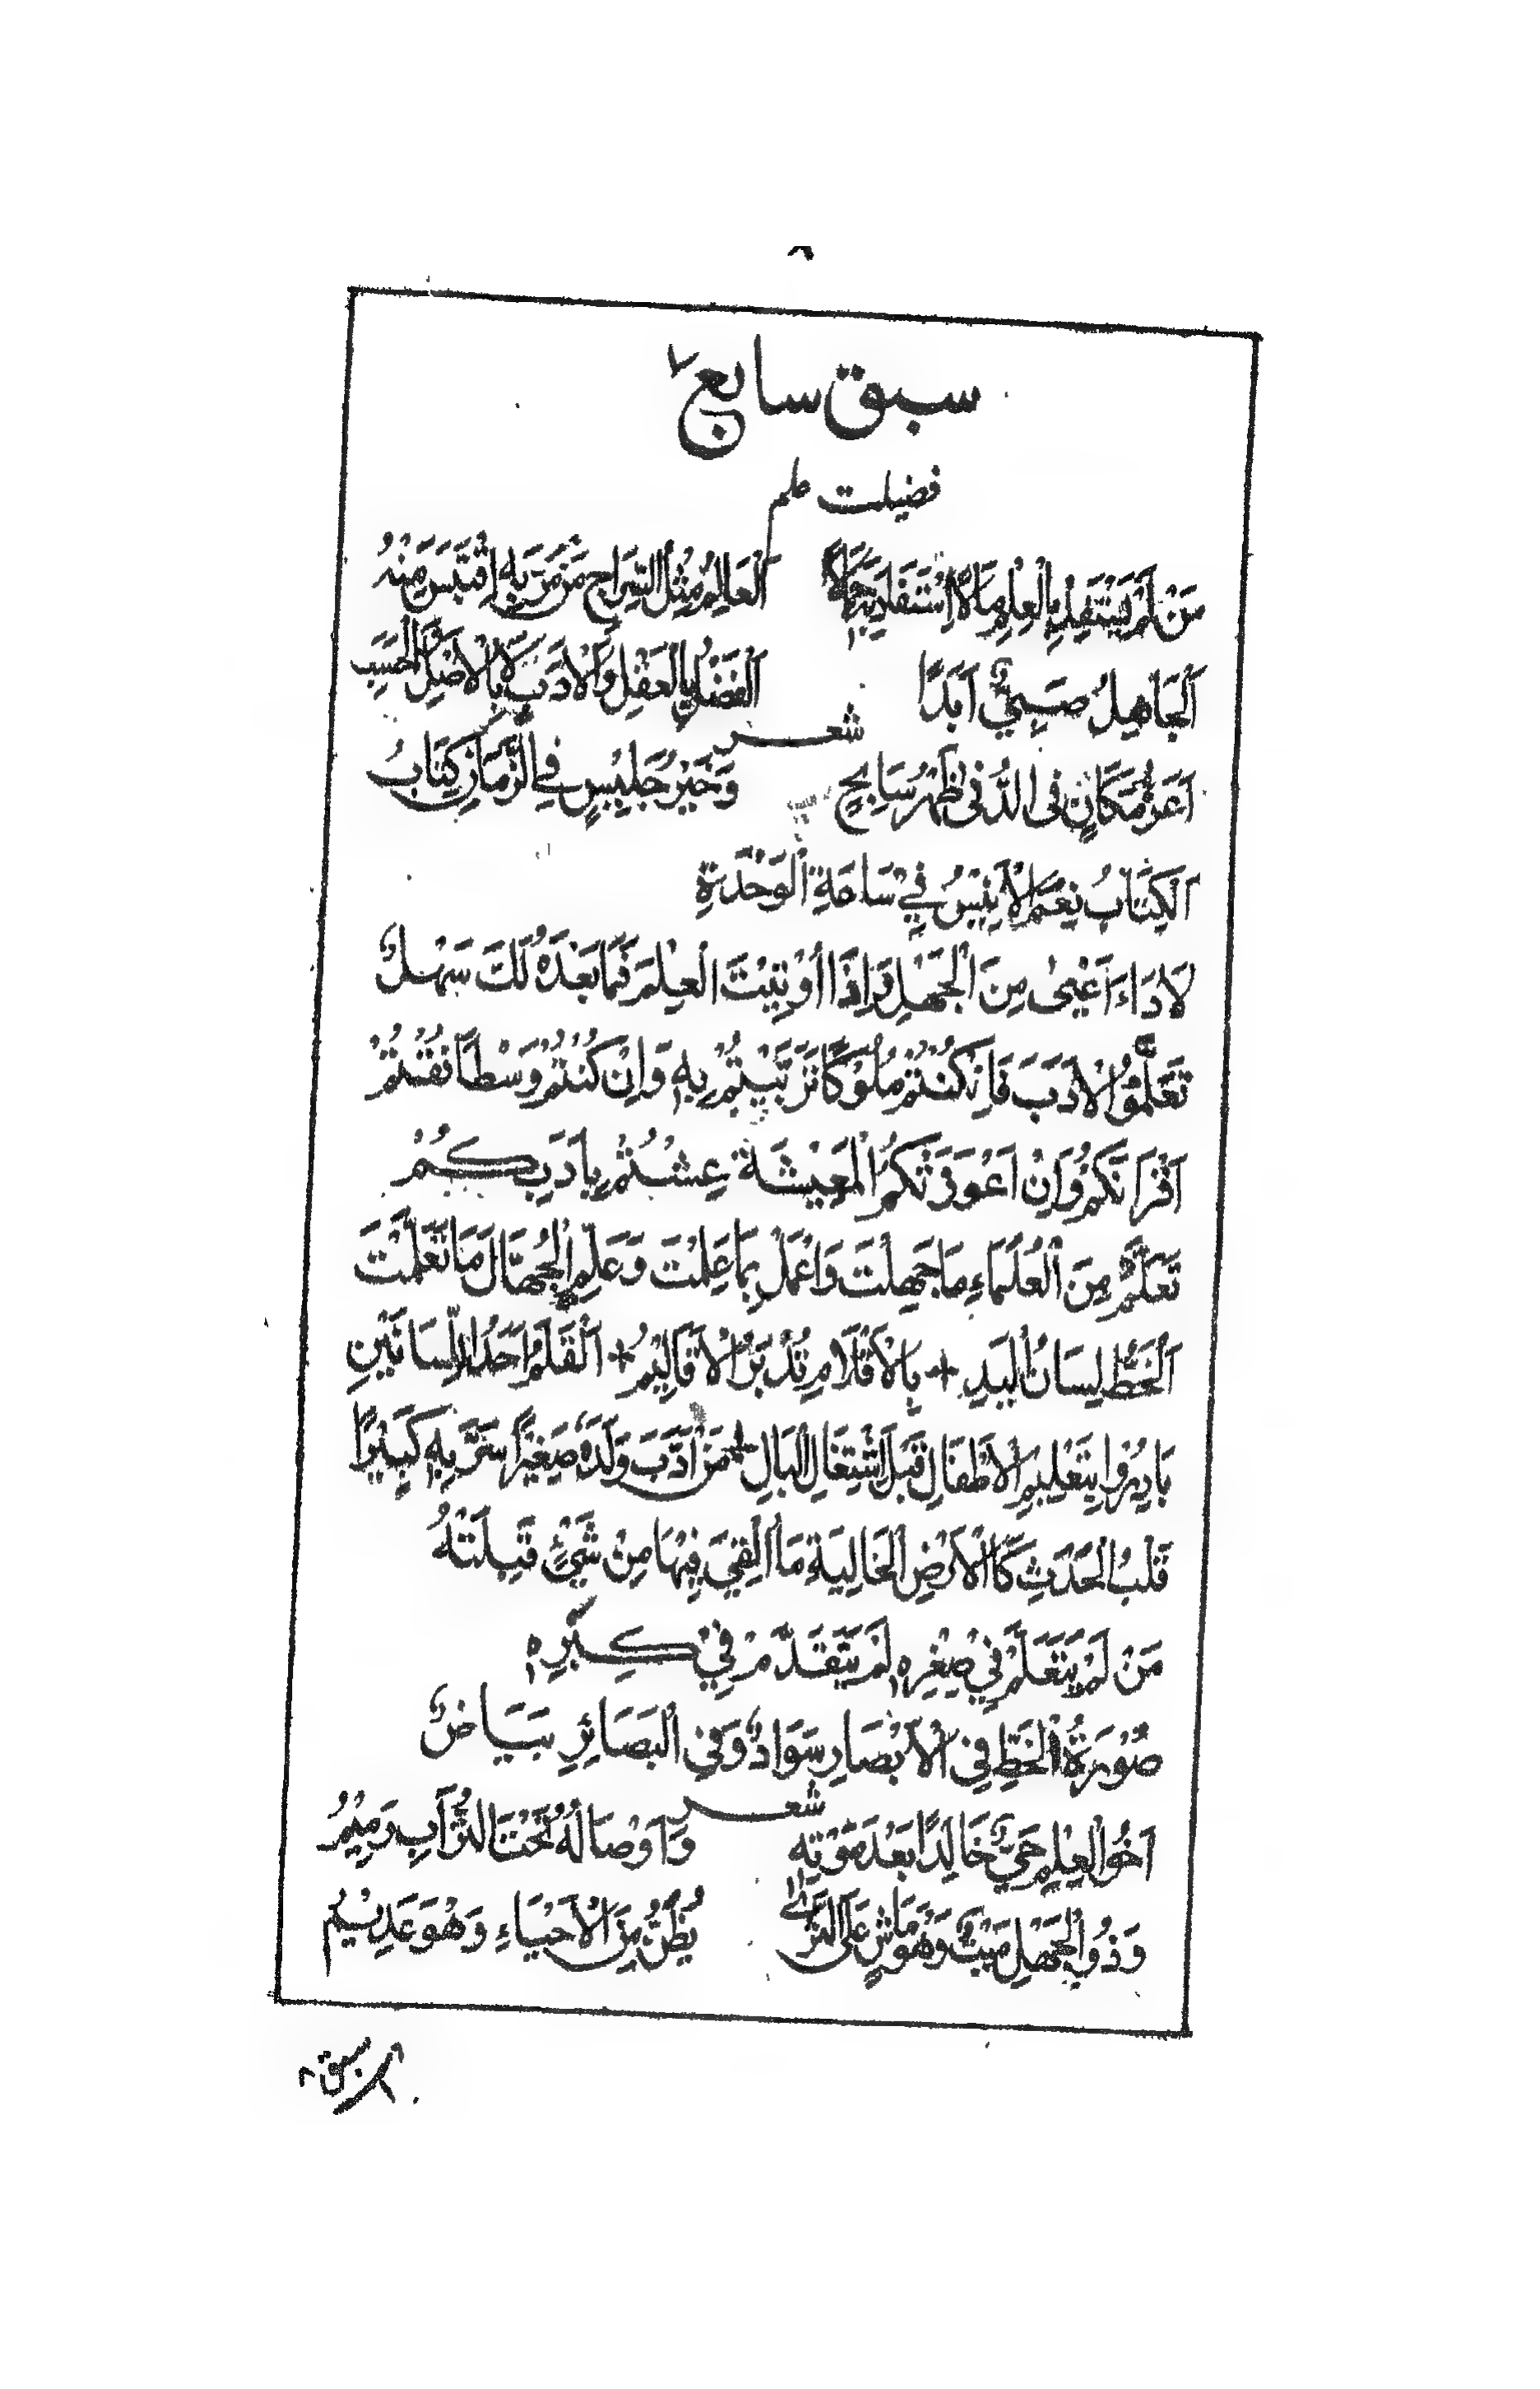 ٨
سبق سابع ٧
فضیلت علم
مَنْ لَمْ يَسْتَفِدْ بِالْعِلْمِ مَالًا اِسْتَفَادَ بِهٖ جَمَالًا اَلْعَالِمُ مِثْلُ السِّرَاجِ مَنْ مَرَّ بِهٖ اِقْتَبَسَ مِنْهُ
اَلْجَاهِلُ صَبِيٌّ اَبَدًا اَلْفَضْلُ بِالْعَقْلِ وَالْاَدَبِ لَا بِالْاَصْلِ وَالْحَسَبِ
شعر
اَعَزُّ مَكَانٍ فى الدُّنٰى ظَهْرُ سَابِحٍ وَخَيْرُ جَلِيْسٍ فِي الزَّمَانِ كِتَابُ
اَلْكِتَابُ نِعْمَ الْاَنِيْسُ فِيْ سَاعَةِ الْوَحْدَةِ
لَا دَاءَ اَعْيٰى مِنَ الْجَهْلِ وَاِذَا اُوْتِيْتَ الْعِلْمَ فَمَا بَعْدَهٗ لَكَ سَهْلٌ
تَعَلَّمُوا الْاَدَبَ فَاِنْ كُنْتُمْ مُلُوْكًا تَزَتَّيْتُمْ بِهٖ وَاِنْ كُنْتُمْ وَسْطًا فُقْتُمْ
اَقْرَانَكُمْ وَاِنْ اَعْوَزَتْكُمُ الْمَعِيْشَةُ عِشْتُمْ بِاَدَبِكُمْ
تَعَلَّمْ مِنَ الْعُلَمَاءِ مَا جَهِلْتَ وَاعْمَلْ بِمَا عَلِمْتَ وَعَلِّمِ الْجُهَّالَ مَا تَعَلَّمْتَ
اَلْخَطُّ لِسَانُ الْيَدِ + بِالْاَقْلَامِ تُدْبَرُ الْاَقَالِيْمُ + اَلْقَلَمُ اَحَدُ الِلّسَانَيْنِ
بَادِرُوْا بِتَعْلِيْمِ الْاَطْفَالِ قَبْلَ اشْتِغَالِ الْبَالِ مَنْ اَدَّبَ وَلَدَهٗ صَغِيْرًا سَرَّ بِهٖ كَبِيْرًا
قَلْبُ الْحَدَثِ كَاالْاَرْضِ الْخَالِيَةِ مَا اُلْقِيَ فِيْهَا مِنْ شَيْئٍ قَبِلَتْهُ
مَنْ لَمْ يَتَعَلَّمْ فِيْ صِغْرِهٖ لَمْ يَتَقَدَّمْ فِيْ كِبَرِهٖ
صُوْرَةُ الْخَطِّ فِى الْاَبْصَارِ سَوَادٌ وَفِي الْبَصَائِرِ بَيَاضٌ
شعر
اَخُو الْعِلْمِ حَيٌّ خَالِدًا بَعْدَ مَوْتِهٖ وَاَوْصَالُهٗ تَحْتَ التُّرَابِ رَمِيْمُ
وَذُو الْجَهْلِ مَيْتٌ وَهْوَ مَاشٍ عَلَى الثَّرٰى يُظَنُّ مِنَ الْاَحْيَاءِ وَهْوَ عَدِيْمُ
سبق ٨